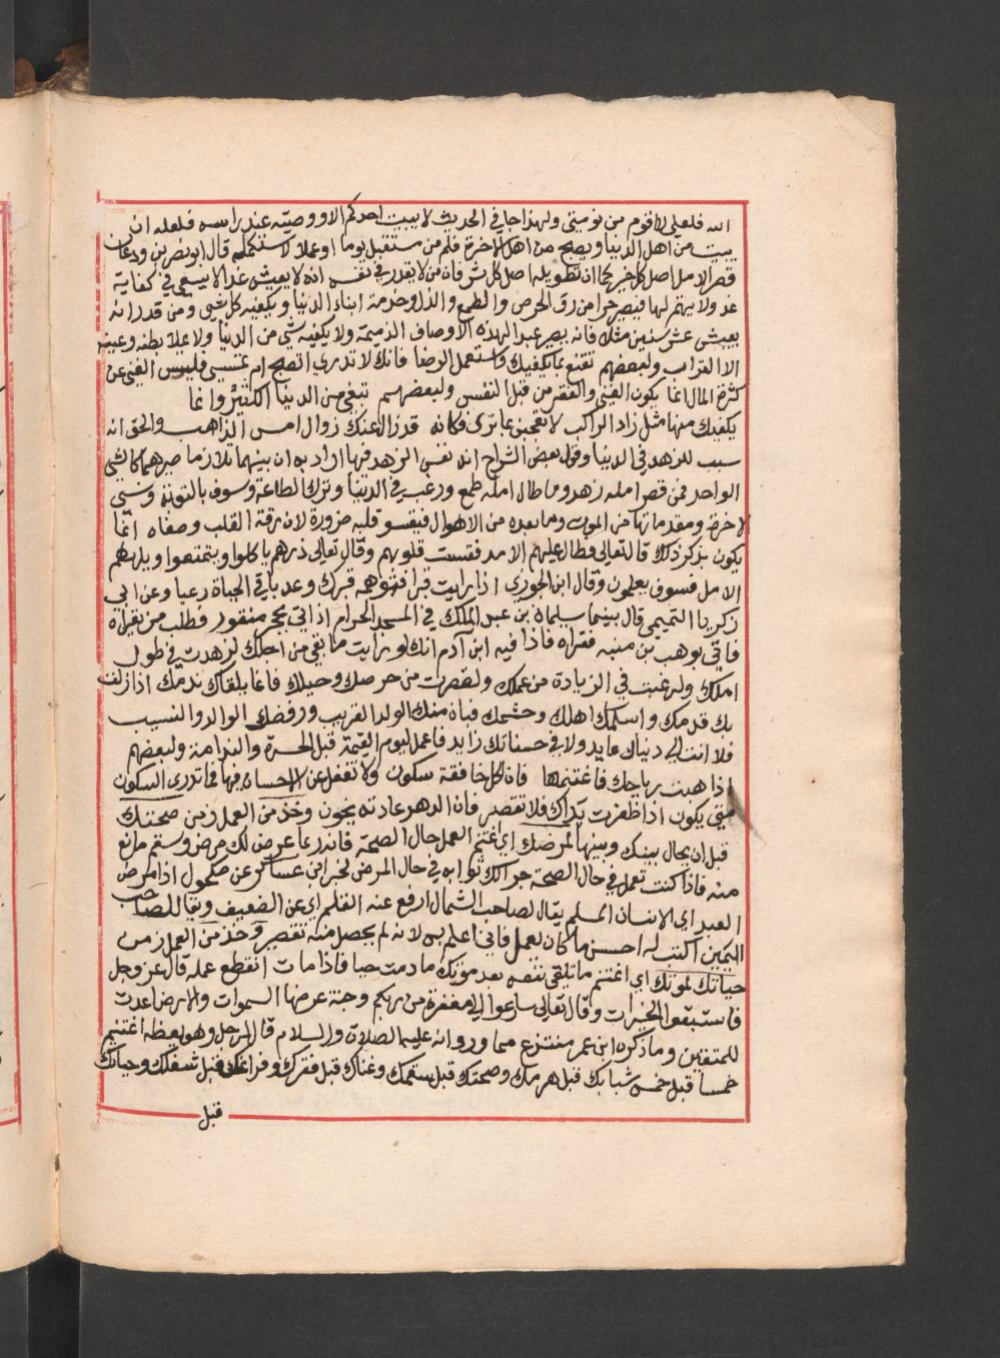 الله فلعلي لا اقوم من نومتي ولهذا جا في الحديث لا يبيت احدكم الا ووصيته عند راسه فلعله ان
يبيت من اهل الدنيا ويصبح من اهل الاخرة فلم من مستقبل يوما او عملا لا يستكمله قال ابو نصر بن ودعان
قصر الامل اصل كل خير كما ان تطويله اصل كل شر فان من لا يقدر في نفسه انه لا يعيش غدا لا يسعي في كفاية
غد ولا يهتم لها فيصير حرا من رق الحرص والطمع والذل وخدمة ابناء الدنيا ويكفيه كل شي ومن قدر انه
يعيش عشر سنين مثلا فانه يصير عبدا لهذه الاوصاف الذميمة ولا يكفيه شي من الدنيا ولا يملا بطنه وعينه
الا التراب ولبعضهم تقنع بما يكفيك واستعمل الرضا فانك لا تدري اتصبح ام تمسي فليس الغني عن
كثرة المال انما يكون الغني والفقر من قبل النفس ولبعضهم تبغي من الدنيا الكثير وانما
يكفيك منها مثل زاد الراكب لا تعجبن بما تري فكانه قد زال عنك زوال امس الذاهب والحق انه
سبب للزهد في الدنيا وقول بعض الشراح انه نفس الزهد فيها اراد به ان بينهما تلازما صيرهما كالشي
الواحد فمن قصر امله زهد وما طال امله طمع ورغب في الدنيا وترك الطاعة وسوف بالتوبة ونسي
الاخرة ومقدماتها من الموت وما بعده من الاهوال فيقسو قلبه ضرورة لان رقة القلب وصفاه انما
يكون بذكر ذلك قال تعالي فطال عليهم الامد فقست قلوبهم وقال تعالي ذرهم ياكلوا ويتمتعوا ويلههم
الامل فسوف يعلمون وقال ابن الجوزي اذا رايت قبرا فتوهمه قبرك وعد باقي الحياة رعبا وعن ابي
زكريا التميمي قال بينما سليمان بن عبد الملك في المسجد الحرام اذ اتي بحجر منقور فطلب من يقراه
فاتي بوهب بن منبه فقراه فاذا فيه ابن آدم انك لو رايت ما بقي من اجلك لزهدت في طول
املك ولرغبت في الزيادة من عملك ولقصرت من حرصك وحيلك فانما يلقاك ندمك اذا زلت
بك قدمك واسلمك اهلك وحشمك فبان منك الولد القريب ورفضك الوالد والنسيب
فلا انت الي دنياك عايد ولا في حسناتك زايد فاعمل ليوم القيمة قبل الحسرة والندامة ولبعضهم
اذا هبت رياحك فاغتنمها فان لكل خافقة سكون ولا تغفل عن الاحسان فيها فما تدري السكون
متي يكون اذا ظفرت يداك فلا تقصر فان الدهر عادته يخون وخذ من العمل زمن صحتك
قبل ان يحال بينك وبينها لمرضك اي اغتنم العمل حال الصحة فانه ربما عرض لك مرض وسقم مانع
منه فاذا كنت تعمل في حال الصحة جرا لك ثوابه في حال المرض لخبر ابن عساكر عن مكحول اذا مرض
العبد اي الانسان المسلم يقال لصاحب الشمال ارفع عنه القلم اي عن الضعيف ويقال لصاحب
اليمين اكتب له احسن ما كان يعمل فاني اعلم به لانه لم يحصل منه تقصير وخذ من العمل زمن
حياتك لموتك اي اغتنم ما تلقي نفعه بعد موتك ما دمت حيا فاذا مات انقطع عمله قال عز وجل
فاستبقوا الخيرات وقال تعالي سارعوا الي مغفرة من ربكم وجنة عرضها السموات والارض اعدت
للمتقين وما ذكره ابن عمر منتزع مما ورد انه عليه الصلاة والسلام قال لرجل وهو يعظه اغتنم
خمسا قبل خمس شبابك قبل هرمك وصحتك قبل سقمك وغناك قبل فقرك وفراغك قبل شغلك وحياتك
قبل